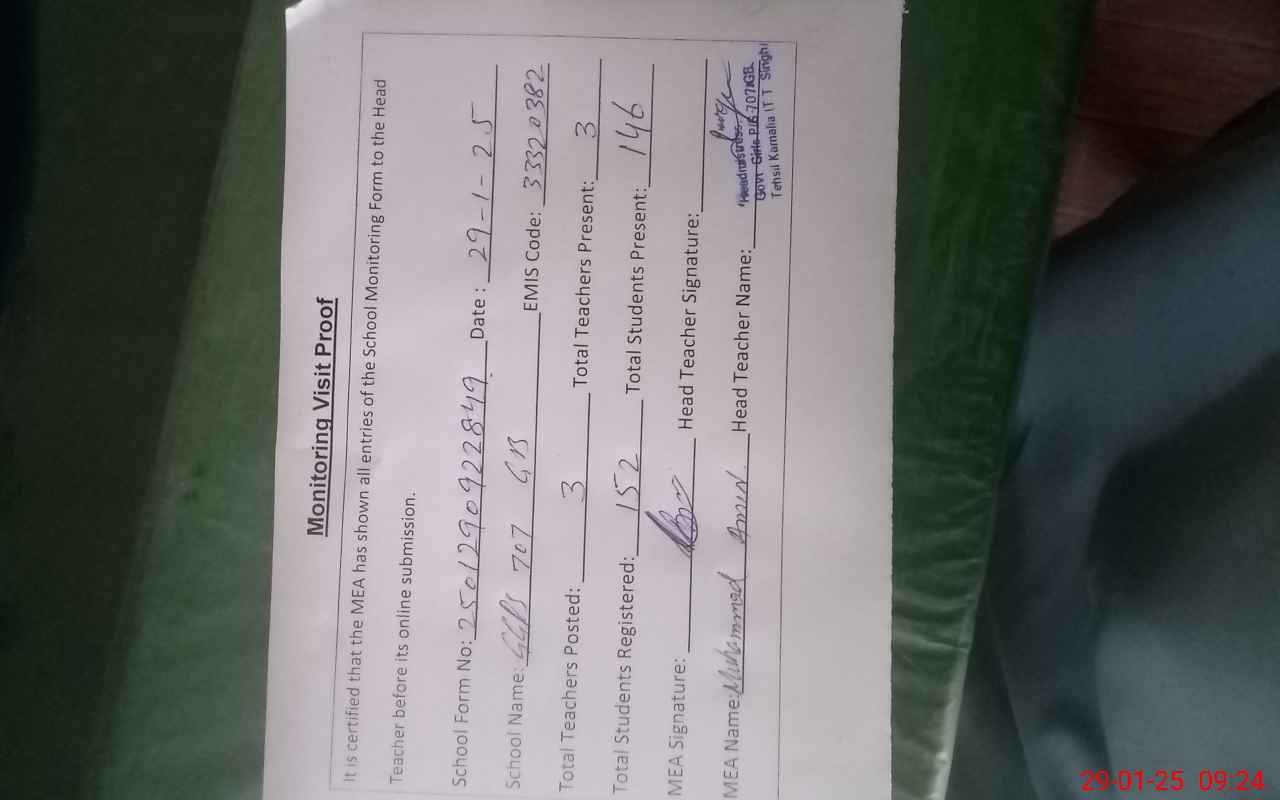 Monitoring Visit Proof
It is certified that the MEA has shown all entries of the School Monitoring Form to the Head
Teacher before its online submission.
School Form No: 250129092849 Date : 29-1-25
School Name: GGPS 707 GB EMIS Code: 33320382
Total Teachers Posted: 3 Total Teachers Present: 3
Total Students Registered: 152 Total Students Present: 146
MEA Signature: Head Teacher Signature:
MEA Name: Muhammad Amin. Head Teacher Name:
Headmistress
Govt Girls P/S 707/GB.
Tehsil Kamalia (T T Singh)
29-01-25 09:24